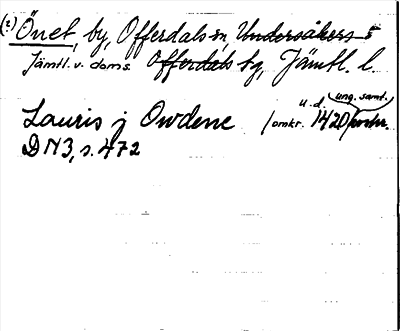 (?) Önet, by, Offerdals sn, Undersåkers o
Jämtl. v. doms. Offerdals tg, Jämtl. l.
u. d. (ung. samt.)
Lauris j Owdene /omkr. 1420/
DN3, s. 472